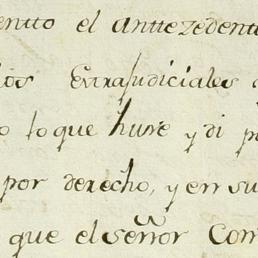 ento el antezedent
ios Extrajudiciales
o lo que hure y di p
por derecho, y en su
que el señor Com